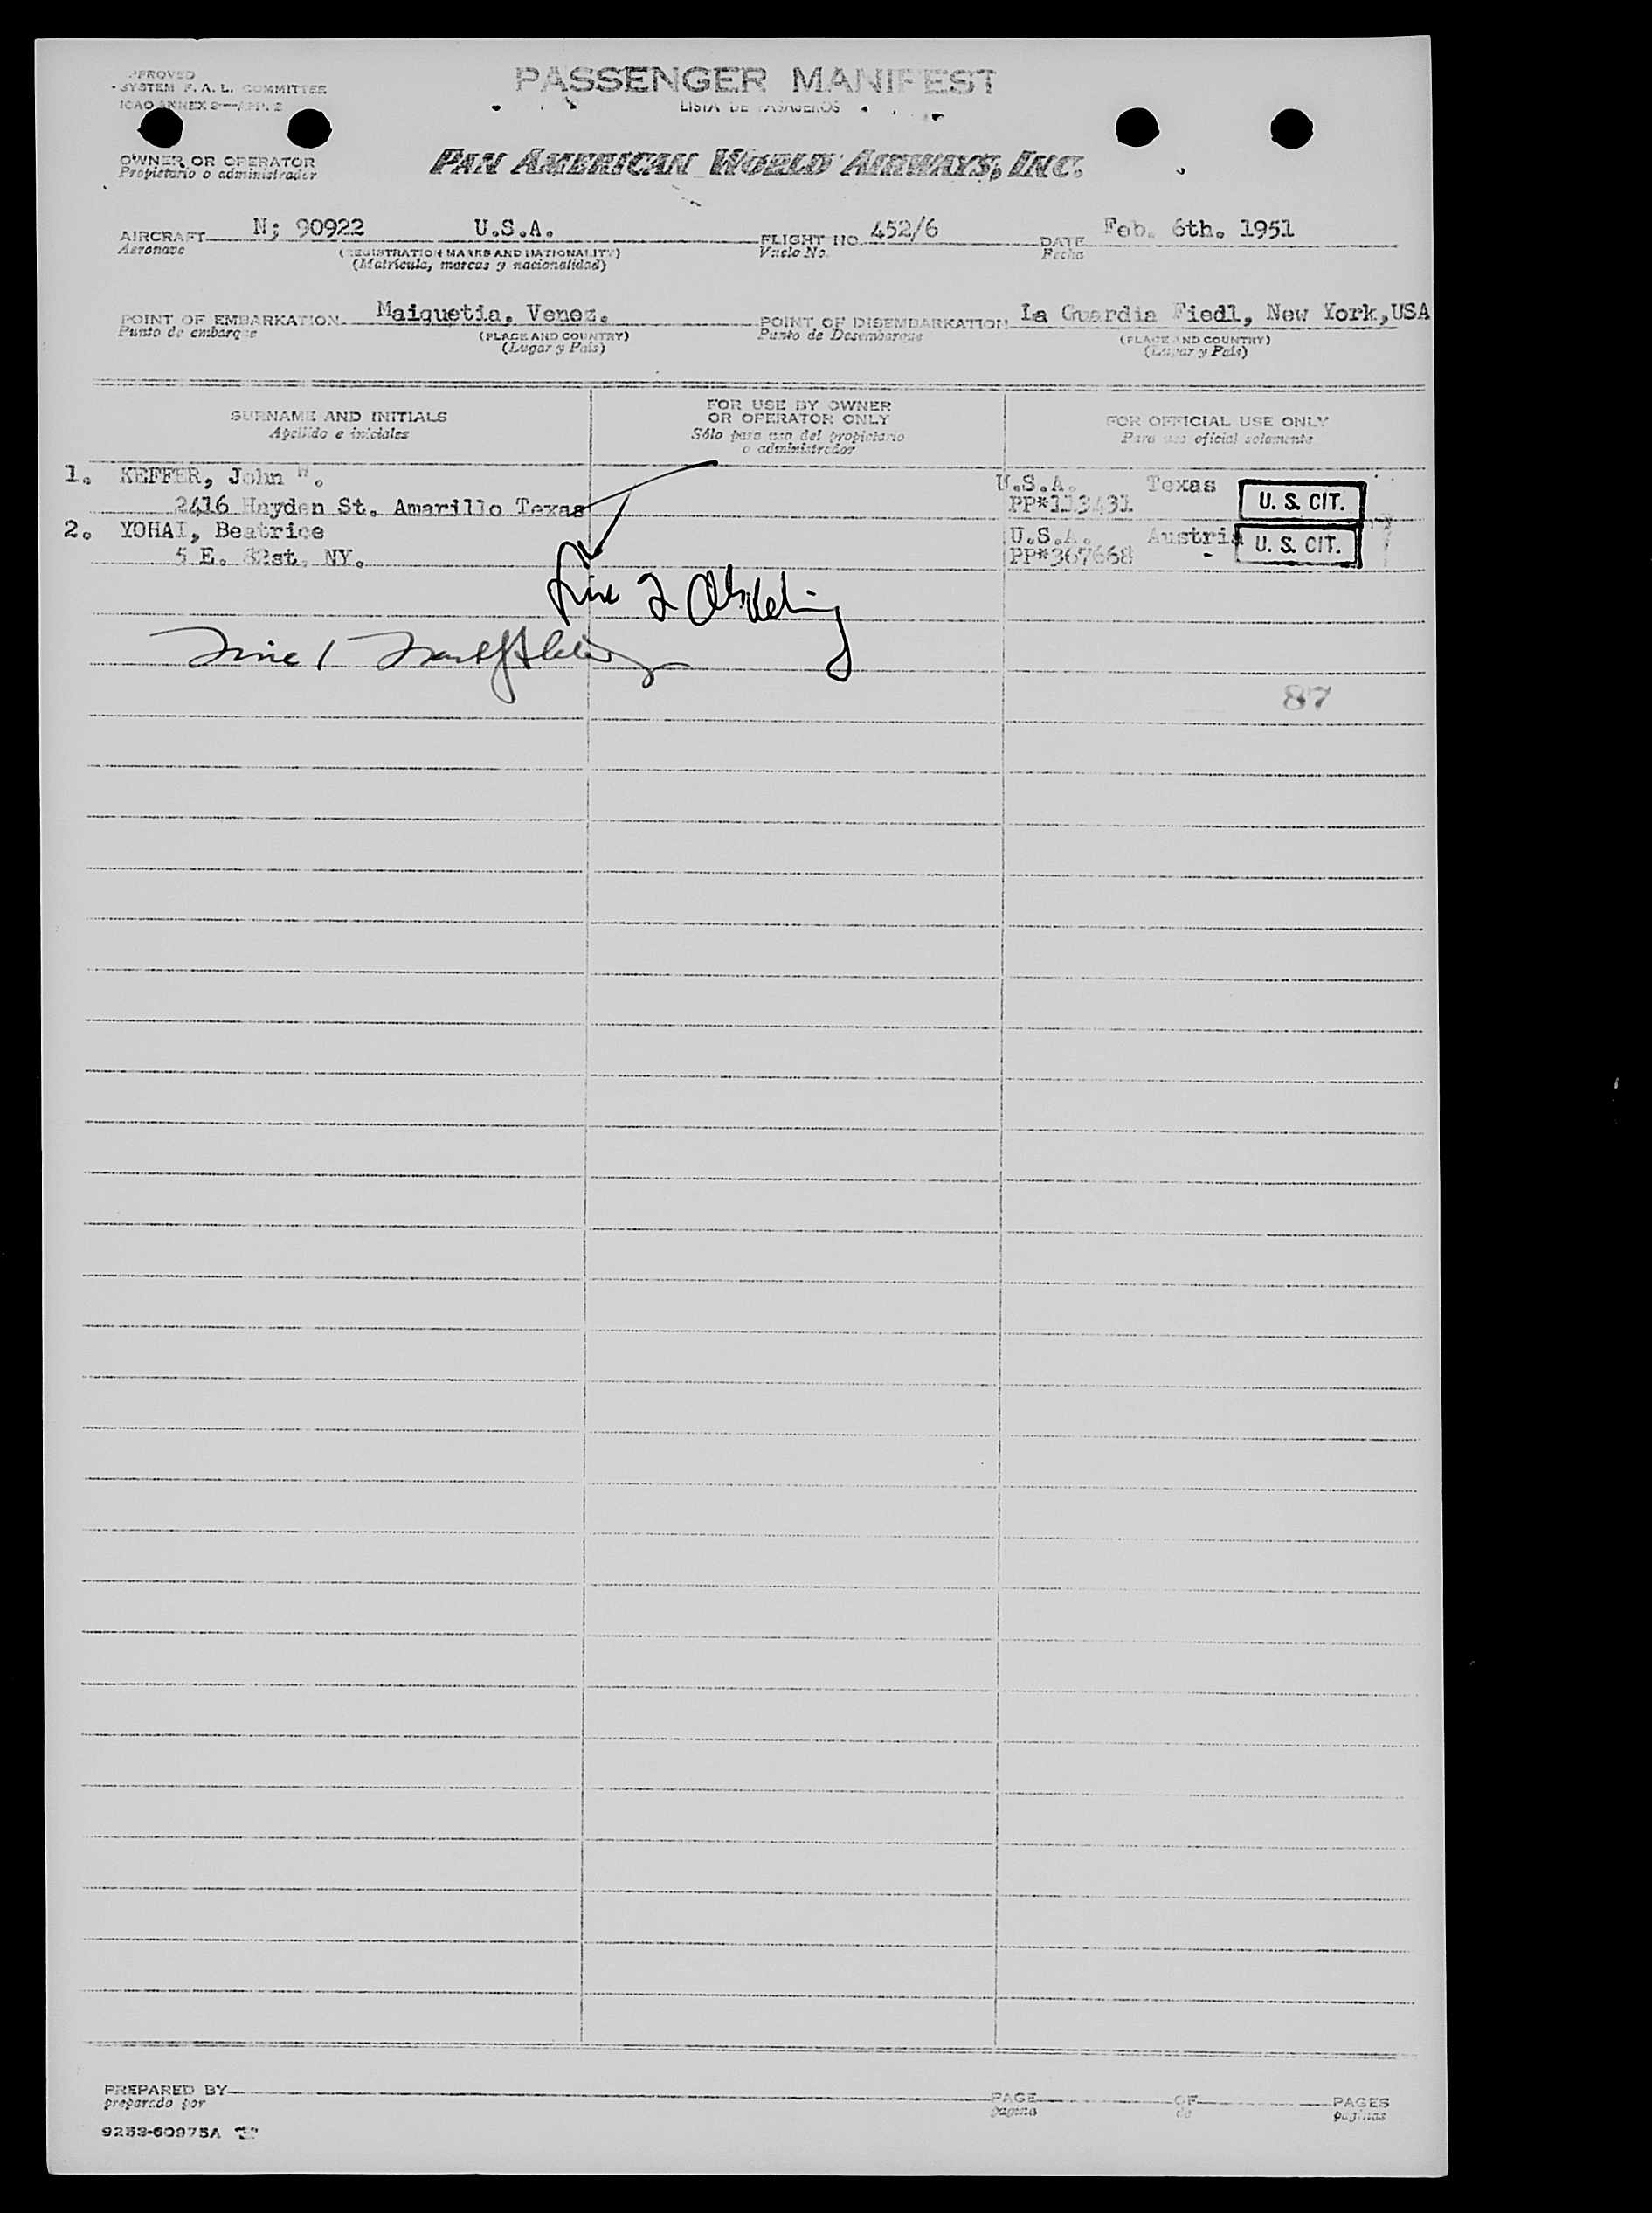 APPROVED
SYSTEM F. A. L. COMMITTEE
ICAO ANNEX 2—APP. 2
PASSENGER MANIFEST
LISTA DE PASAJEROS
OWNER OR OPERATOR
Propietario o administrador
PAN AMERICAN WORLD AIRWAYS, INC.
AIRCRAFT N; 90922 U.S.A. FLIGHT NO. 452/6 DATE Feb. 6th. 1951
Aeronave (REGISTRATION MARKS AND NATIONALITY) Vuelo No. Fecha
(Matrícula, marcas y nacionalidad)
POINT OF EMBARKATION Maiquetia, Venez. POINT OF DISEMBARKATION La Guardia Fiedl, New York,USA
Punto de embarque (PLACE AND COUNTRY) Punto de Desembarque (PLACE AND COUNTRY)
(Lugar y País) (Lugar y País)
SURNAME AND INITIALS
Apellido e iniciales
FOR USE BY OWNER
OR OPERATOR ONLY
Sólo para uso del propietario
o administrador
FOR OFFICIAL USE ONLY
Para uso oficial solamente
1. KEFFER, John W. U.S.A. Texas U. S. CIT.
2416 Hayden St. Amarillo Texas PP*113431
2. YOHAI, Beatrice U.S.A. Austria U. S. CIT.
5 E. 82st, NY. PP*367668
Line 2
Line 1
87
PREPARED BY PAGE OF PAGES
preparado por pagina de paginas
9253-60975A